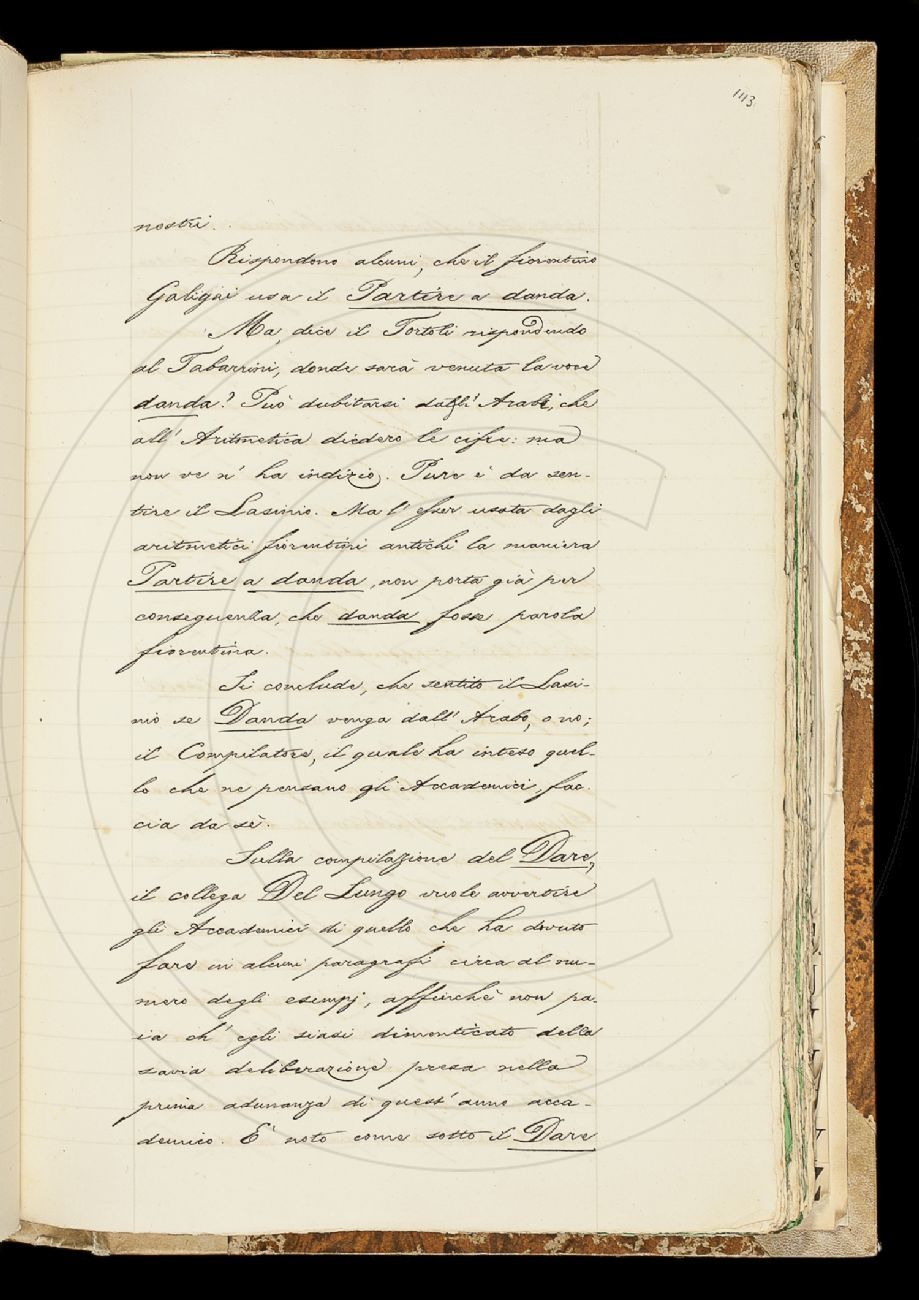 1113
nostri.
Rispondono alcuni, che il fiorentino
Galigai usa il Partire a danda.
Ma, dice il Tortoli rispondendo
al Tabarrini, donde sarà venuta la voce
danda? Può dubitarsi dagli Arabi, che
all' Aritmetica diedero le cifre: ma
non ve n' ha indizio. Pure è da sen-
tire il Lasinio. Ma l' esser usata dagli
aritmetici fiorentini antichi la maniera
Partire a danda, non porta già per
conseguenza, che danda fosse parola
fiorentina.
Si conclude, che sentito il Lasi-
nio se Danda venga dall' Arabo, o no;
il Compilatore, il quale ha inteso quel-
lo che ne pensano gli Accademici, fac-
cia da sè.
Sulla compilazione del Dare,
il collega Del Lungo vuole avvertire
gli Accademici di quello che ha dovuto
fare in alcuni paragrafi circa al nu-
mero degli esempj, affinchè non pa-
ia ch' egli siasi dimenticato della
savia deliberazione presa nella
prima adunanza di quest' anno acca-
demico. È noto come sotto il Dare